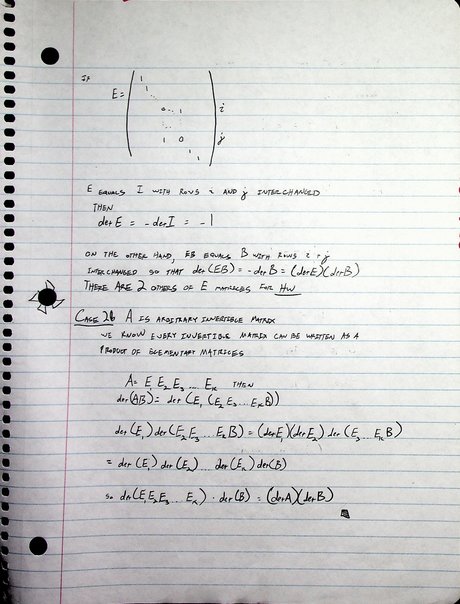 IF
E = ( 1
1
0 .. 1 ) i
1 0 j
1
1
E EQUALS I WITH ROWS i AND j INTERCHANGED
THEN
det E = -det I = -1
ON THE OTHER HAND, EB EQUALS B WITH ROWS i + j
INTERCHANGED SO THAT det(EB) = -det B = (det E)(det B)
THERE ARE 2 OTHERS OF E MATRICES FOR HW
CASE 2b A IS ARBITRARY INVERTIBLE MATRIX
WE KNOW EVERY INVERTIBLE MATRIX CAN BE WRITTEN AS A
PRODUCT OF ELEMENTARY MATRICES
A = E₁ E₂ E₃ ... Eₖ THEN
det(AB) = det(E₁(E₂E₃...EₖB))
det(E₁)det(E₂E₃...EₖB) = (det E₁)(det E₂) det(E₃...EₖB)
= det(E₁) det(E₂) ... det(Eₖ) det(B)
SO det(E₁E₂E₃...Eₖ) · det(B) = (det A)(det B)